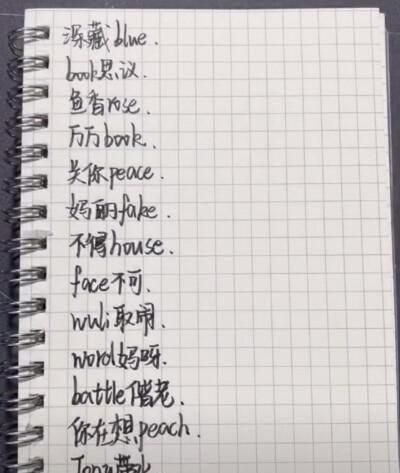 深藏blue.
book思议.
鱼香rose.
万万book.
关你peace.
妈丽fake.
不得house.
face不可.
wuli取闹.
word妈呀.
battle偕老.
你在想peach.
Tony带水